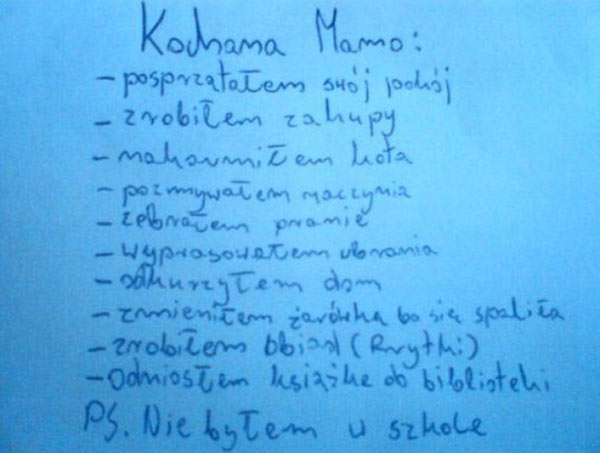 Kochana Mamo:
- posprzątałem swój pokój
- zrobiłem zakupy
- nakarmiłem kota
- pozmywałem naczynia
- zebrałem pranie
- wyprasowałem ubrania
- odkurzyłem dom
- zmieniłem żarówkę bo się spaliła
- zrobiłem obiad (
- odniosłem książkę do biblioteki
PS. Nie byłem w szkole